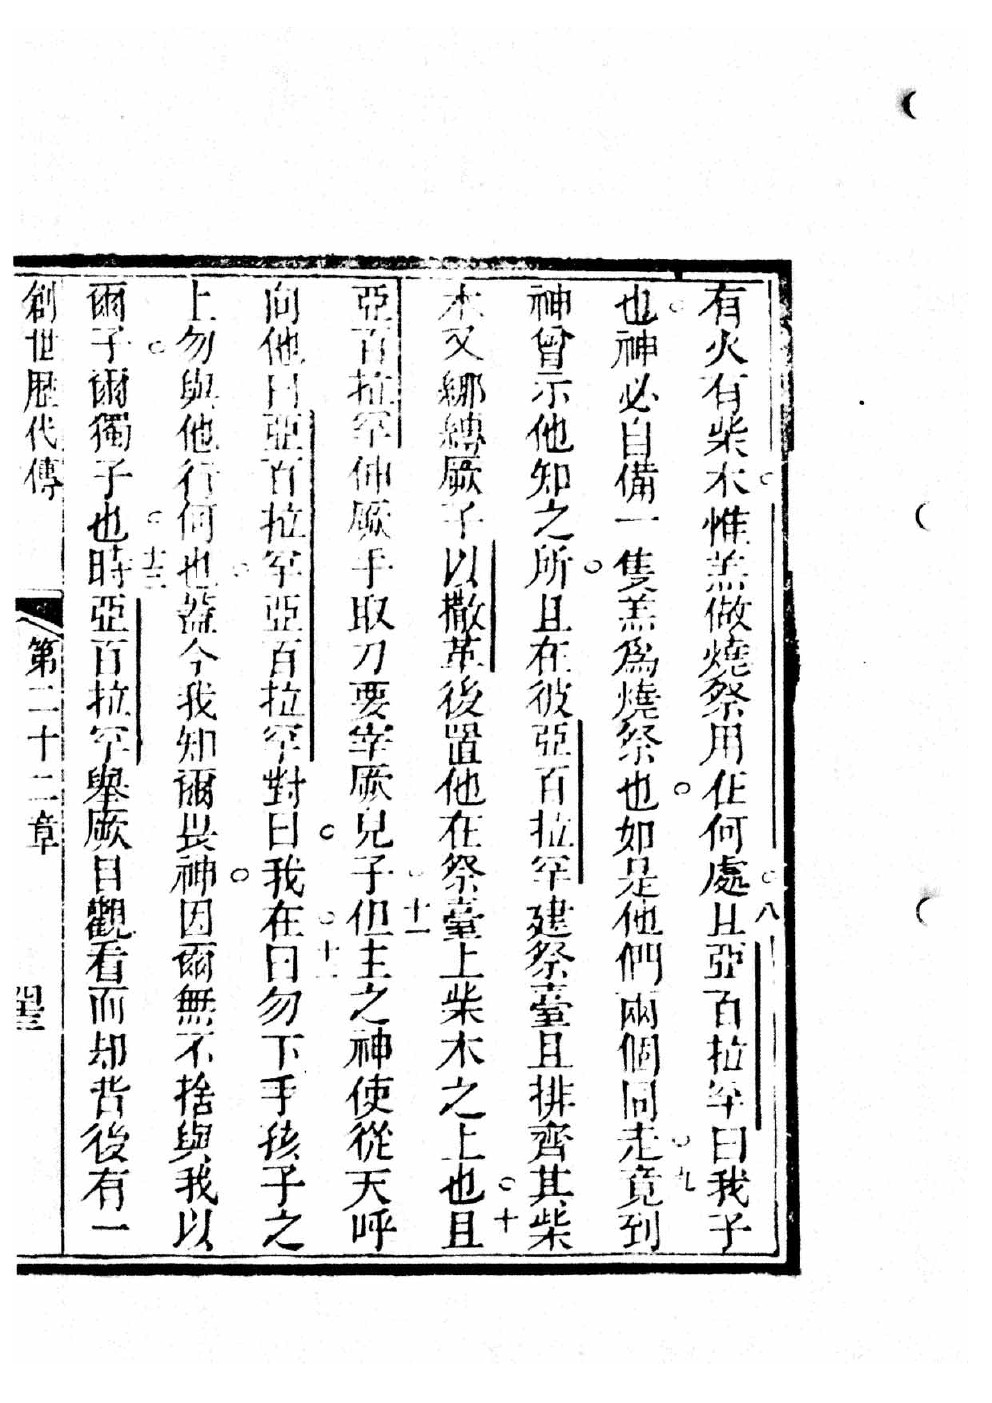 有火有柴木惟羔做燒祭用在何處八且亞百拉罕曰我子
也神必自備一隻羔爲燒祭也如是他們兩個同走九竟到
神曾示他知之所且在彼亞百拉罕建祭臺且排齊其柴
木又綁縛厥子以撒革後置他在祭臺上柴木之上也十且
亞百拉罕伸厥手取刀要宰厥兒子十一但主之神使從天呼
向他曰亞百拉罕亞百拉罕對曰我在十二曰勿下手孩子之
上勿與他行何也蓋今我知爾畏神因爾無不捨與我以
爾子爾獨子也十三時亞百拉罕舉厥目觀看而却背後有一
創世歷代傳 第二十二章